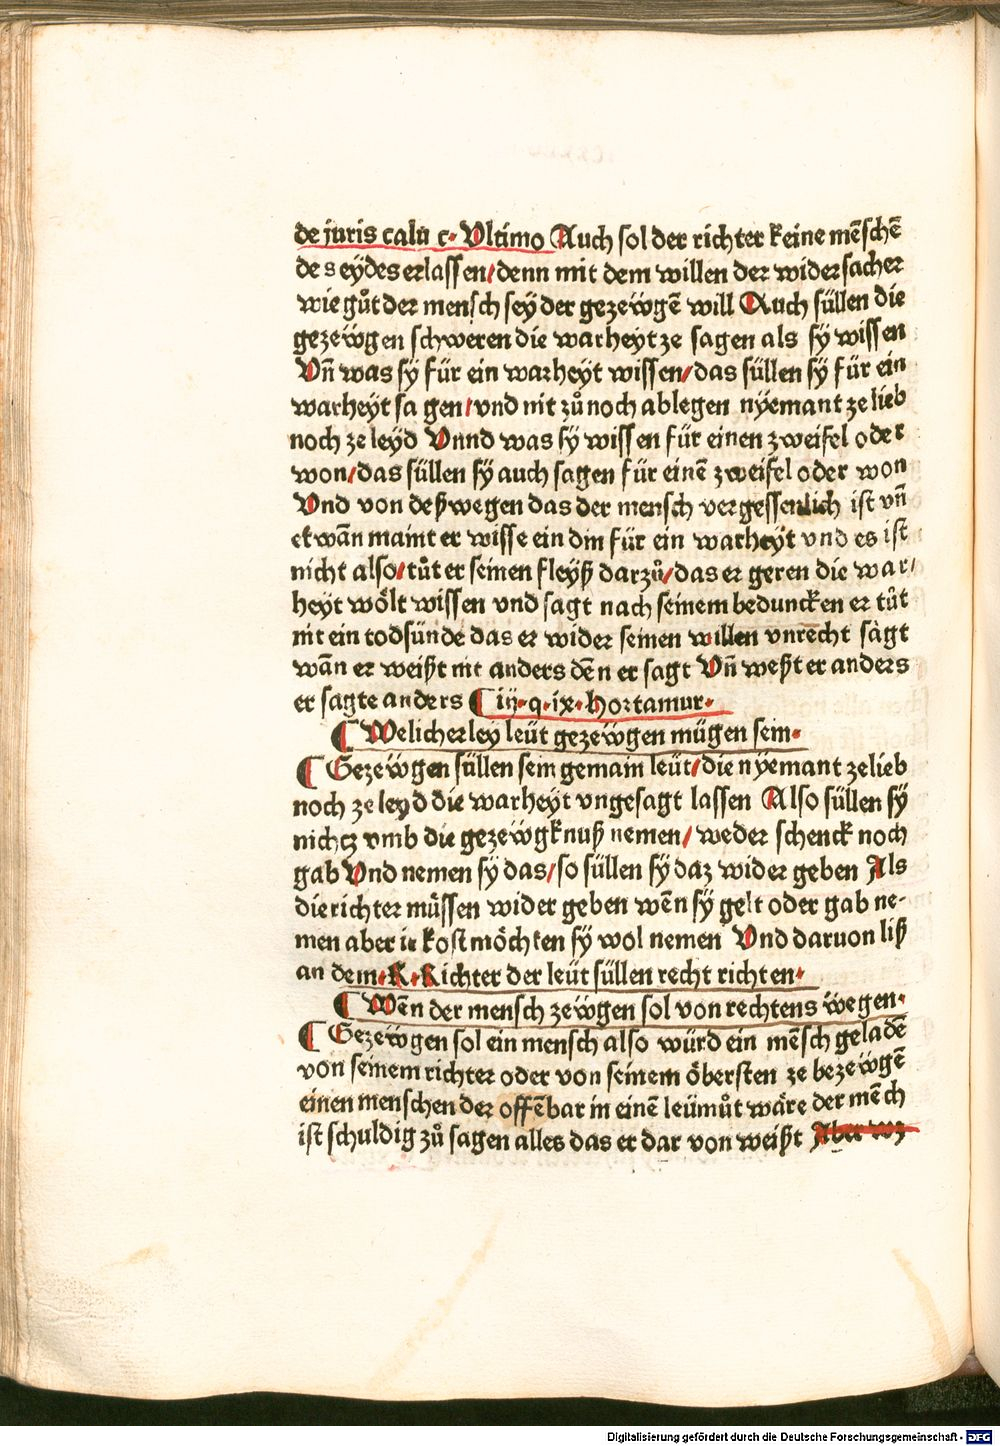 de juris calū c· Ultimo Auch sol der richter keine mēschē
des eydes erlassen/denn mit dem willen der widersacher
wie gůt der mensch sey der gezeẅgē will Auch süllen die
gezeẅgen schweren die warheyt ze sagen als sÿ wissen
Vn̄ was sÿ für ein warheyt wissen/das süllen sÿ für ein
warheÿt sagen/vnd nit zů noch ablegen nÿemant ze lieb
noch ze leÿd Vnnd was sÿ wissen für einen zweifel oder
won/das süllen sÿ auch sagen für einē zweifel oder won
Vnd von deßwegen das der mensch vergessenlich ist vn̄
etwān maint er wisse ein din für ein warheÿt vnd es ist
nicht also/tůt er seinen fleÿß darzů/das er geren die war/
heyt wo̊lt wissen vnd sagt nach seinem beduncken er tůt
nit ein todsünde das er wider seinen willen vnrecht sagt
wān er weißt nit anders dēn er sagt Vn̄ weßt er anders
er sagte anders ¶ iij·q·ix·Hortamur·
¶ Welicherley leüt gezeẅgen mügen sein·
¶ Gezeẅgen süllen sein gemain leüt/die nÿemant ze lieb
noch ze leyd die warheyt vngesagt lassen Also süllen sÿ
nichtz vmb die gezeẅgknuß nemen/ weder schenck noch
gab Vnd nemen sÿ das/so süllen sÿ daz wider geben Als
die richter müssen wider geben wēn sÿ gelt oder gab ne-
men aber ir kost möchten sÿ wol nemen Vnd daruon liß
an dem·R·Richter der leüt süllen recht richten·
¶ Wēn der mensch zeẅgen sol von rechtens wegen·
¶ Gezeẅgen sol ein mensch also würd ein mēsch geladē
von seinem richter oder von seinem öbersten ze bezeẅgē
einen menschen der offēbar in einē leümůt wäre der mēch
ist schuldig zů sagen alles das er dar von weißt Aber wz
Digitalisierung gefördert durch die Deutsche Forschungsgemeinschaft - DFG